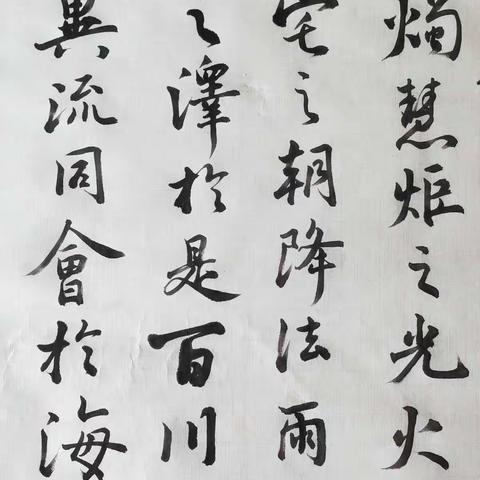 燭慧炬之光火
宅之朝降法雨
之澤於是百川
異流同會於海